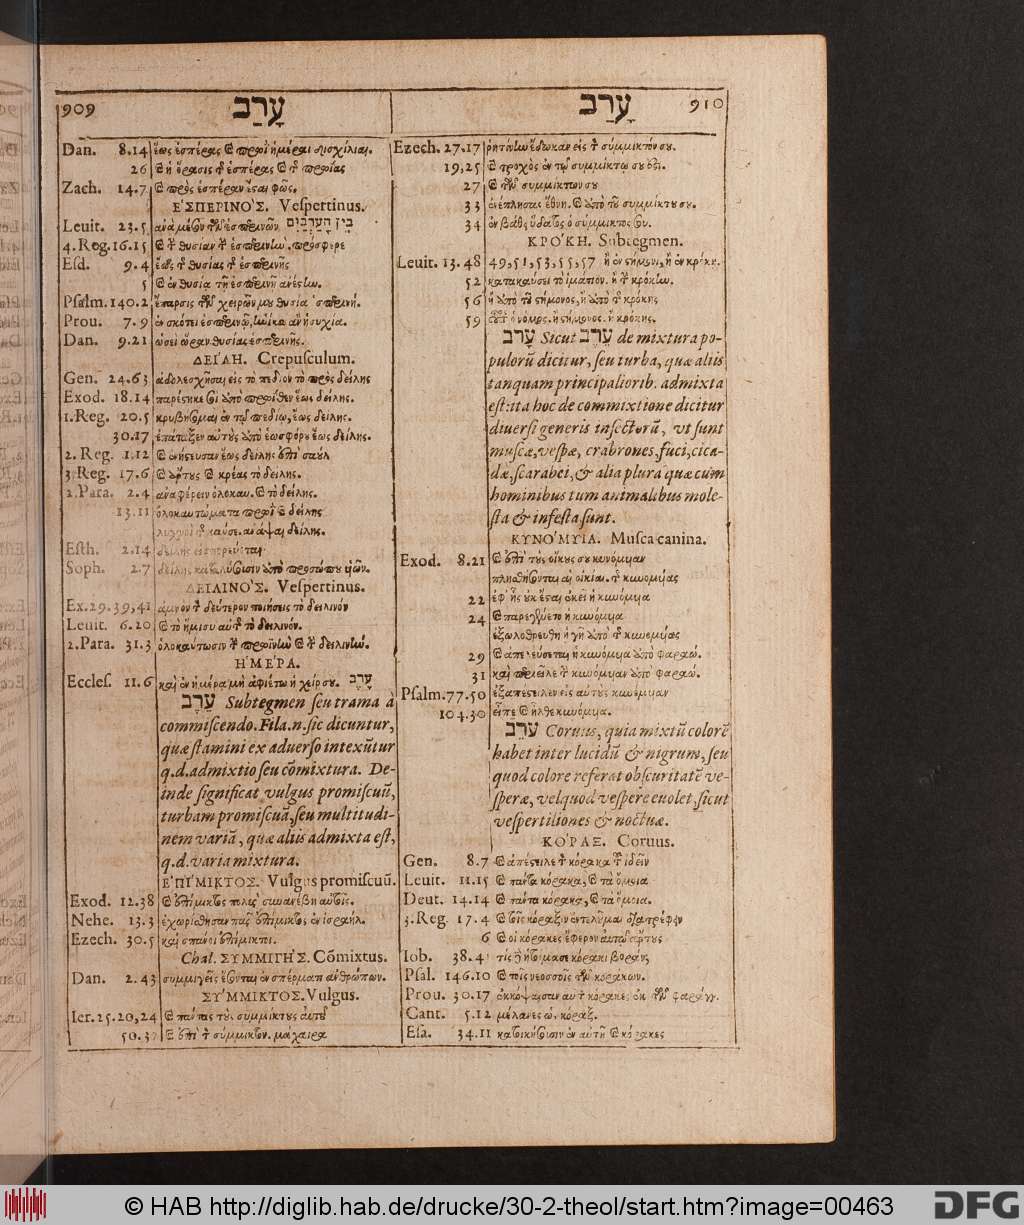 909 עָרַב
Dan. 8.14 ἕως ἑσπέρας ϗ πρωῒ ἡμέραι δισχίλιαι.
26 ϗ ἡ ὅρασις τ ἑσπέρας ϗ τ πρωΐας
Zach. 14.7 ϗ πρὸς ἑσπέραν ἔσαι φῶς.
ἙΣΠΕΡΙΝΟΣ. Vespertinus.
Leuit. 23.5 ἀνὰ μέσον τῶν ἑσπερινῶν בֵּין הָעַרְבַּיִם
4. Reg. 16.15 ϗ τ θυσίαν τ ἑσπερινὴν, πρόσφερε
Esd. 9.4 ἕως τ θυσίας τ ἑσπερινῆς
5 ϗ ἐν θυσίᾳ τῇ ἑσπερινῇ ἀνέστην.
Psalm. 140.2 ἔπαρσις τῶν χειρῶν μου θυσία ἑσπερινή.
Prou. 7.9 ἐν σκότει ἑσπερινῷ, ἡνίκα ἂν ἡσυχία.
Dan. 9.21 ὡσεὶ ὥραν θυσίας ἑσπερινῆς.
ΔΕΙΛΗ. Crepusculum.
Gen. 24.63 ἀδολεσχῆσαι εἰς τὸ πεδίον τὸ πρὸς δείλης
Exod. 18.14 παρέστηκέ σοι ἀπὸ πρωΐθεν ἕως δείλης.
1. Reg. 20.5 κρυβήσομαι ἐν τῷ πεδίῳ, ἕως δείλης.
30.17 ἐπάταξεν αὐτοὺς ἀπὸ ἑωσφόρου ἕως δείλης.
2. Reg. 1.12 ϗ ἐνήστευσαν ἕως δείλης ἐπὶ σαοὺλ
3. Reg. 17.6 ϗ ἄρτους ϗ κρέας τὸ δείλης.
2. Para. 2.4 ἀναφέρειν ὁλοκαυ. ϗ τὸ δείλης.
13.11 ὁλοκαυτώματα πρωῒ ϗ δείλης
δείλης.
Esth. 2.14 δείλης εἰσπορεύεται
Soph. 2.7 δείλης καταλύσουσιν ἀπὸ προσώπου υἱῶν.
ΔΕΙΛΙΝΟΣ. Vespertinus.
Ex. 29.39,41 ἀμνὸν τ δεύτερον ποιήσεις τὸ δειλινόν
Leuit. 6.20 ϗ τὸ ἥμισυ αὐτ τὸ δειλινόν.
2. Para. 31.3 ὁλοκαύτωσιν τ πρωϊνὴν ϗ τ δειλινήν.
ΗΜΕΡΑ.
Eccles. 11.6 καὶ ἐν ἡμέρᾳ μὴ ἀφιέτω ἡ χείρ σου. עֶרֶב
עֵרֶב Subtegmen seu trama à
commiscendo. Fila.n.sic dicuntur,
quæ stamini ex aduerso intexũtur
q.d. admixtio seu cõmixtura. De-
inde significat vulgus promiscuũ,
turbam promiscuã, seu multitudi-
nem variã, quæ aliis admixta est,
q.d. varia mixtura.
ἘΠΙΜΙΚΤΟΣ. Vulgus promiscuũ.
Exod. 12.38 ϗ ἐπίμικτος πολὺς συνανέβη αὐτοῖς.
Nehe. 13.3 ἐχωρίσθησαν πᾶς ἐπίμικτος ἐν ἰσραήλ.
Ezech. 30.5 καὶ πάντες ἐπίμικτοι.
Chal. ΣΥΜΜΙΓΗΣ. Cõmixtus.
Dan. 2.43 συμμιγεῖς ἔσονται ἐν σπέρματι ἀνθρώπων.
ΣΥΜΜΙΚΤΟΣ. Vulgus.
Ier. 25.20,24 ϗ πάντας τοὺς συμμίκτους αὐτοῦ
50.37 ϗ ἐπὶ τ σύμμικτον. μάχαιρα

עָרַב 910
Ezech. 27.17 ῥητίνην ἔδωκαν εἰς τ σύμμικτόν σου.
19,25 ϗ τροχὸς ἐν τῷ συμμίκτῳ σού ἐστι.
27 ϗ τῶν συμμίκτων σου
33 ἐνέπλησας ἔθνη. ϗ ἀπὸ τοῦ συμμίκτου σου.
34 ἐν βάθει ὕδατος ὁ σύμμικτός σου.
ΚΡΟΚΗ. Subtegmen.
Leuit. 13.48 49,51,53,55,57 ἢ ἐν στήμονι, ἢ ἐν κρόκῃ.
52 κατακαύσει τὸ ἱμάτιον. ἢ τ κρόκην.
56 ἢ ἀπὸ τοῦ στήμονος, ἢ ἀπὸ τ κρόκης
59 ὁ νόμος. ἢ στήμονος. ἢ κρόκης.
עָרֹב Sicut עֵרֶב de mixtura po-
pulorũ dicitur, seu turba, quæ aliis
tanquam principaliorib. admixta
est: ita hoc de commixtione dicitur
diuersi generis insectorũ, vt sunt
muscæ, vespæ, crabrones, fuci, cica-
dæ, scarabei, & alia plura quæ cum
hominibus tum animalibus mole-
sta & infesta sunt.
ΚΥΝΟΜΥΙΑ. Musca canina.
Exod. 8.21 ϗ ἐπὶ τοὺς οἴκους σου κυνόμυιαν
πλησθήσονται αἱ οἰκίαι. τ κυνομυίας
22 ἐφ᾽ ἧς οὐκ ἔσται ἐκεῖ ἡ κυνόμυια
24 ϗ παρεγένετο ἡ κυνόμυια
ἐξωλοθρεύθη ἡ γῆ ἀπὸ τ κυνομυίας
29 ϗ ἀπελεύσεται ἡ κυνόμυια ἀπὸ φαραώ.
31 καὶ περιεῖλε τ κυνόμυιαν ἀπὸ φαραώ.
Psalm. 77.50 ἐξαπέστειλεν εἰς αὐτοὺς κυνόμυιαν
104.30 εἶπε ϗ ἦλθε κυνόμυια.
עֹרֵב Coruus, quia mixtũ colorẽ
habet inter lucidũ & nigrum, seu
quod colore referat obscuritatẽ ve-
speræ, vel quod vespere euolet, sicut
vespertiliones & noctuæ.
ΚΟΡΑΞ. Coruus.
Gen. 8.7 ϗ ἀπέστειλε τ κόρακα τ ἰδεῖν
Leuit. 11.15 ϗ πάντα κόρακα, ϗ τὰ ὅμοια
Deut. 14.14 ϗ πάντα κόρακα, ϗ τὰ ὅμοια.
3. Reg. 17.4 ϗ τοῖς κόραξιν ἐντελοῦμαι διατρέφειν
6 ϗ οἱ κόρακες ἔφερον αὐτῷ ἄρτους
Iob. 38.41 τίς ἡτοίμασε κόρακι βοράν,
Psal. 146.10 ϗ τοῖς νεοσσοῖς τῶν κοράκων.
Prou. 30.17 ἐκκόψαισαν αυτ κόρακες ἐκ τῶν φαράγγ.
Cant. 5.12 μέλανες ὡς κόραξ.
Esa. 34.11 κατοικήσουσιν ἐν αὐτῇ ϗ κόρακες

© HAB http://diglib.hab.de/drucke/30-2-theol/start.htm?image=00463
DFG